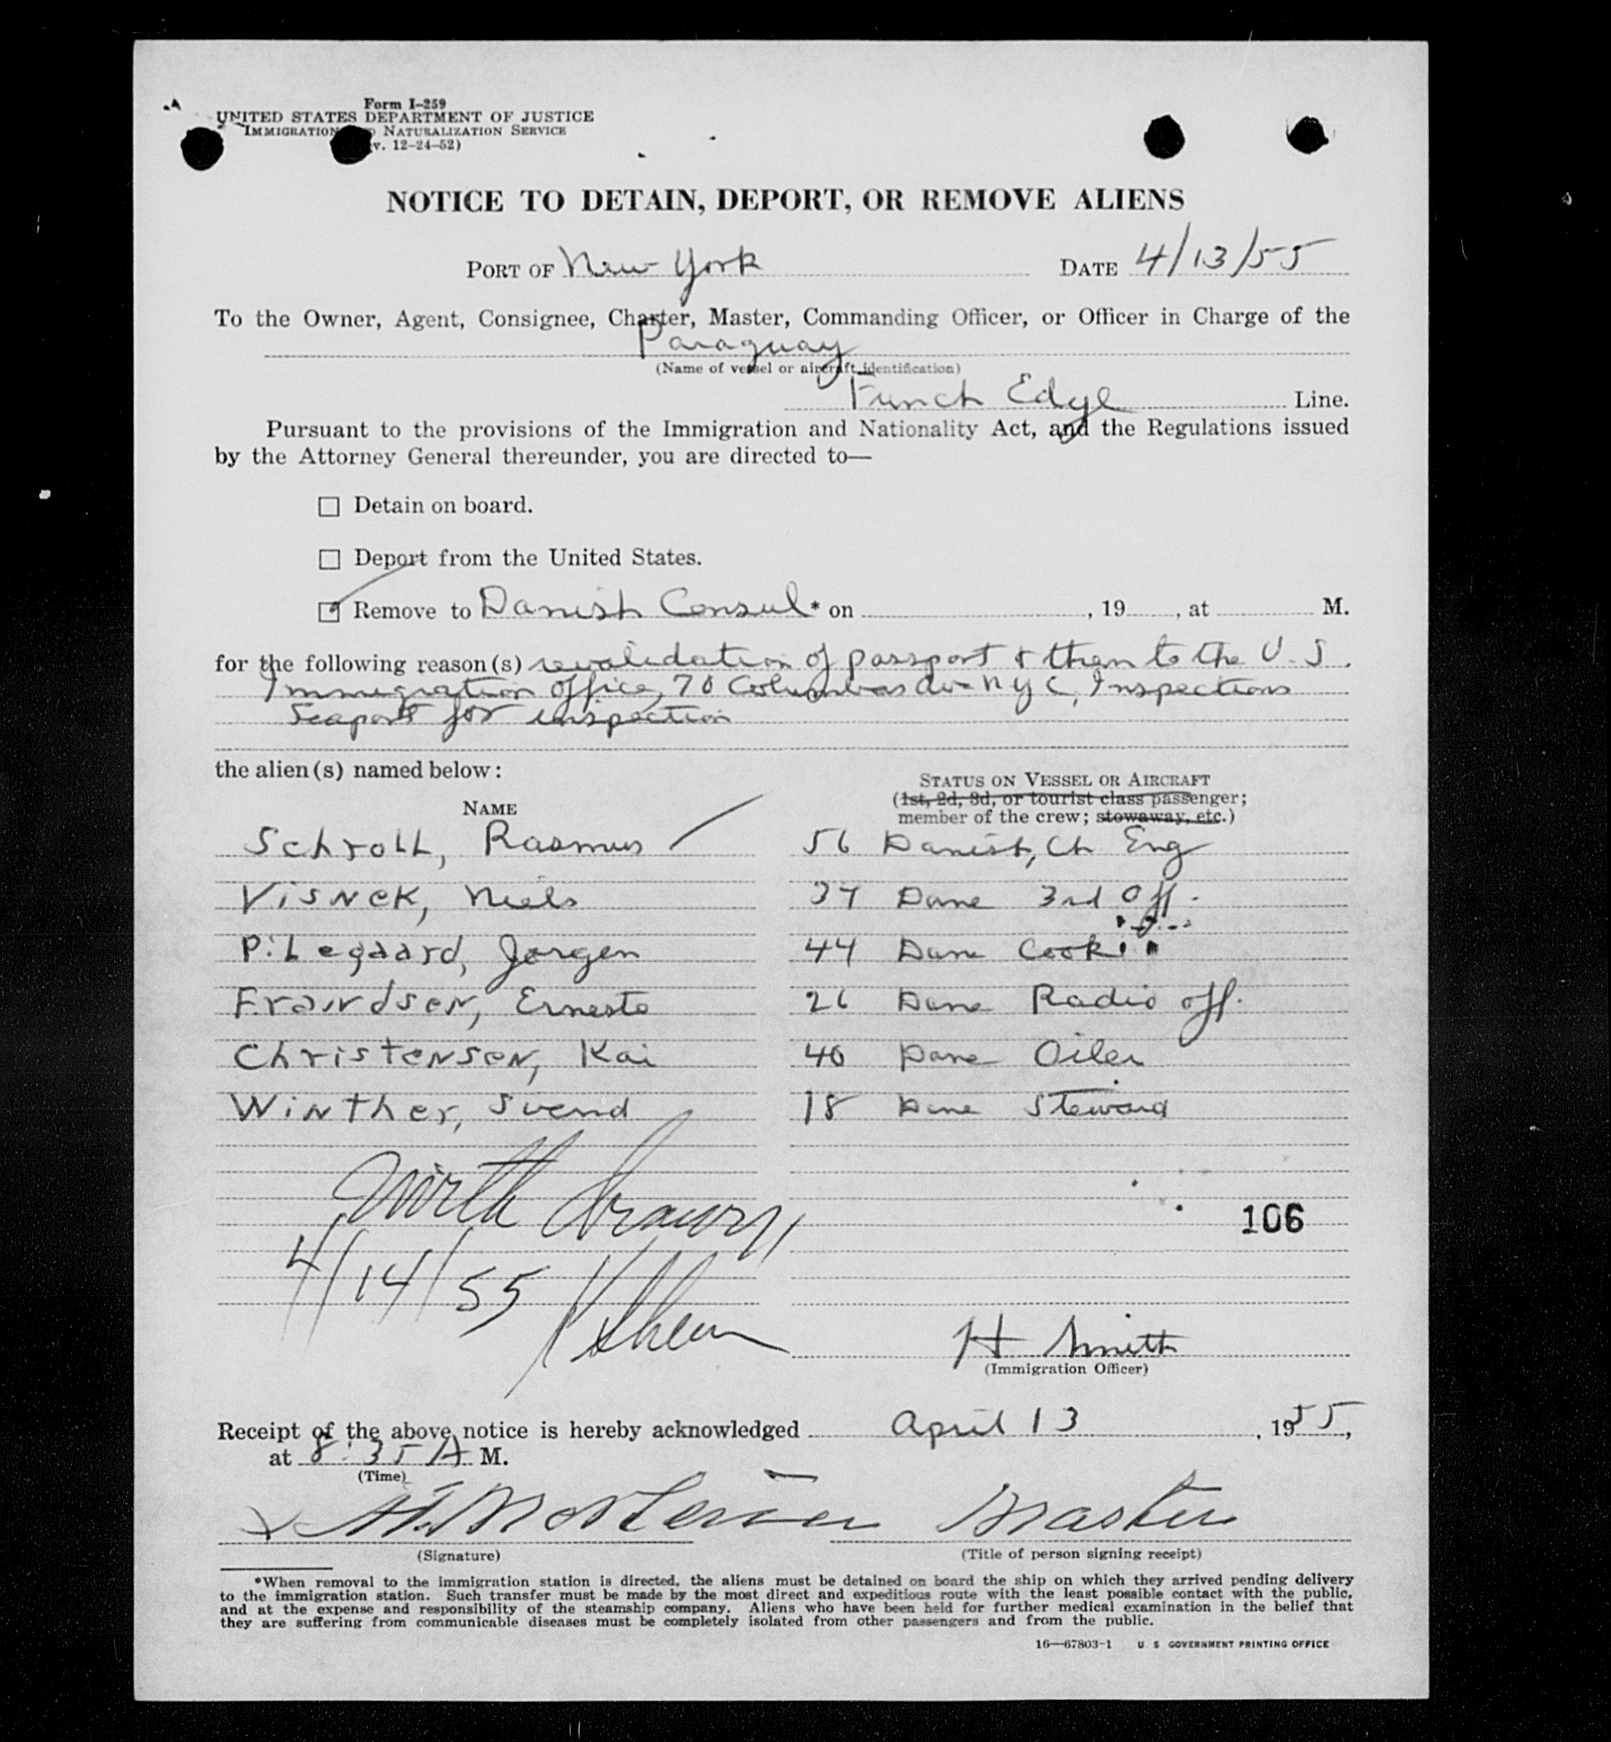 Form I-259
UNITED STATES DEPARTMENT OF JUSTICE
IMMIGRATION NATURALIZATION SERVICE
v. 12-24-52)
NOTICE TO DETAIN, DEPORT, OR REMOVE ALIENS
PORT OF New York DATE 4/13/55
To the Owner, Agent, Consignee, Charter, Master, Commanding Officer, or Officer in Charge of the
Paraguay
(Name of vessel or aircraft identification)
Funch Edye Line.
Pursuant to the provisions of the Immigration and Nationality Act, and the Regulations issued
by the Attorney General thereunder, you are directed to—
☐ Detain on board.
☐ Deport from the United States.
☑ Remove to Danish Consul * on , 19 , at M.
for the following reason(s) revalidation of passport & then to the U.S.
Immigration office, 70 Columbus Ave N Y C, Inspections
Seaport for inspection
the alien(s) named below:
STATUS ON VESSEL OR AIRCRAFT
(1st, 2d, 3d, or tourist class passenger;
NAME
member of the crew; stowaway, etc.)
Schroll, Rasmus 56 Danish, Ch Eng
Visnek, Niels 37 Dane 3rd Off.
Pilegaard, Jorgen 44 Dane Cook
Frandsen, Ernesto 26 Dane Radio off.
Christensen, Kai 40 Dane Oiler
Winther, Svend 18 Dane Steward
106
4/14/55
H Smith
(Immigration Officer)
Receipt of the above notice is hereby acknowledged April 13, 1955,
at 8:35 A M.
(Time)
Master
(Signature) (Title of person signing receipt)
*When removal to the immigration station is directed, the aliens must be detained on board the ship on which they arrived pending delivery
to the immigration station. Such transfer must be made by the most direct and expeditious route with the least possible contact with the public,
and at the expense and responsibility of the steamship company. Aliens who have been held for further medical examination in the belief that
they are suffering from communicable diseases must be completely isolated from other passengers and from the public.
16—67803-1 U S GOVERNMENT PRINTING OFFICE